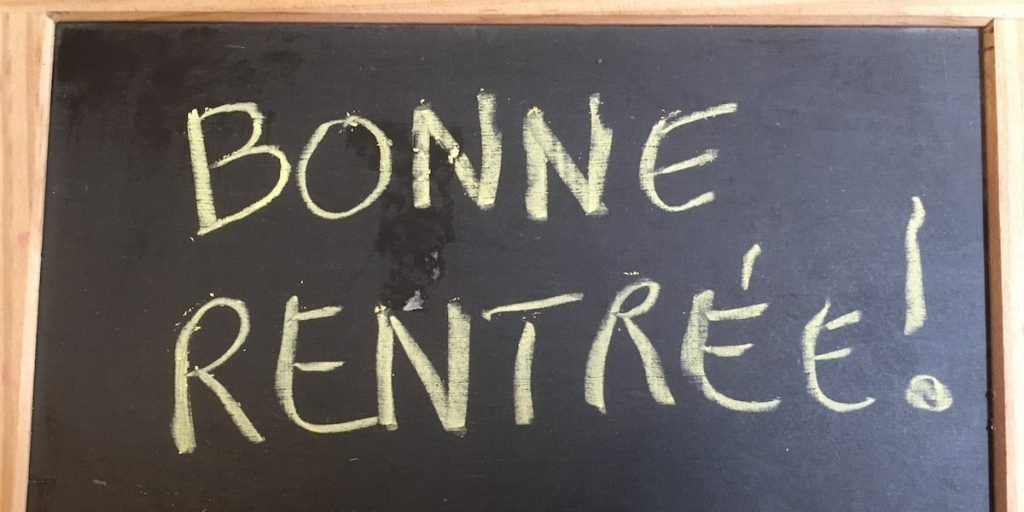 BONNE
RENTRÉE!